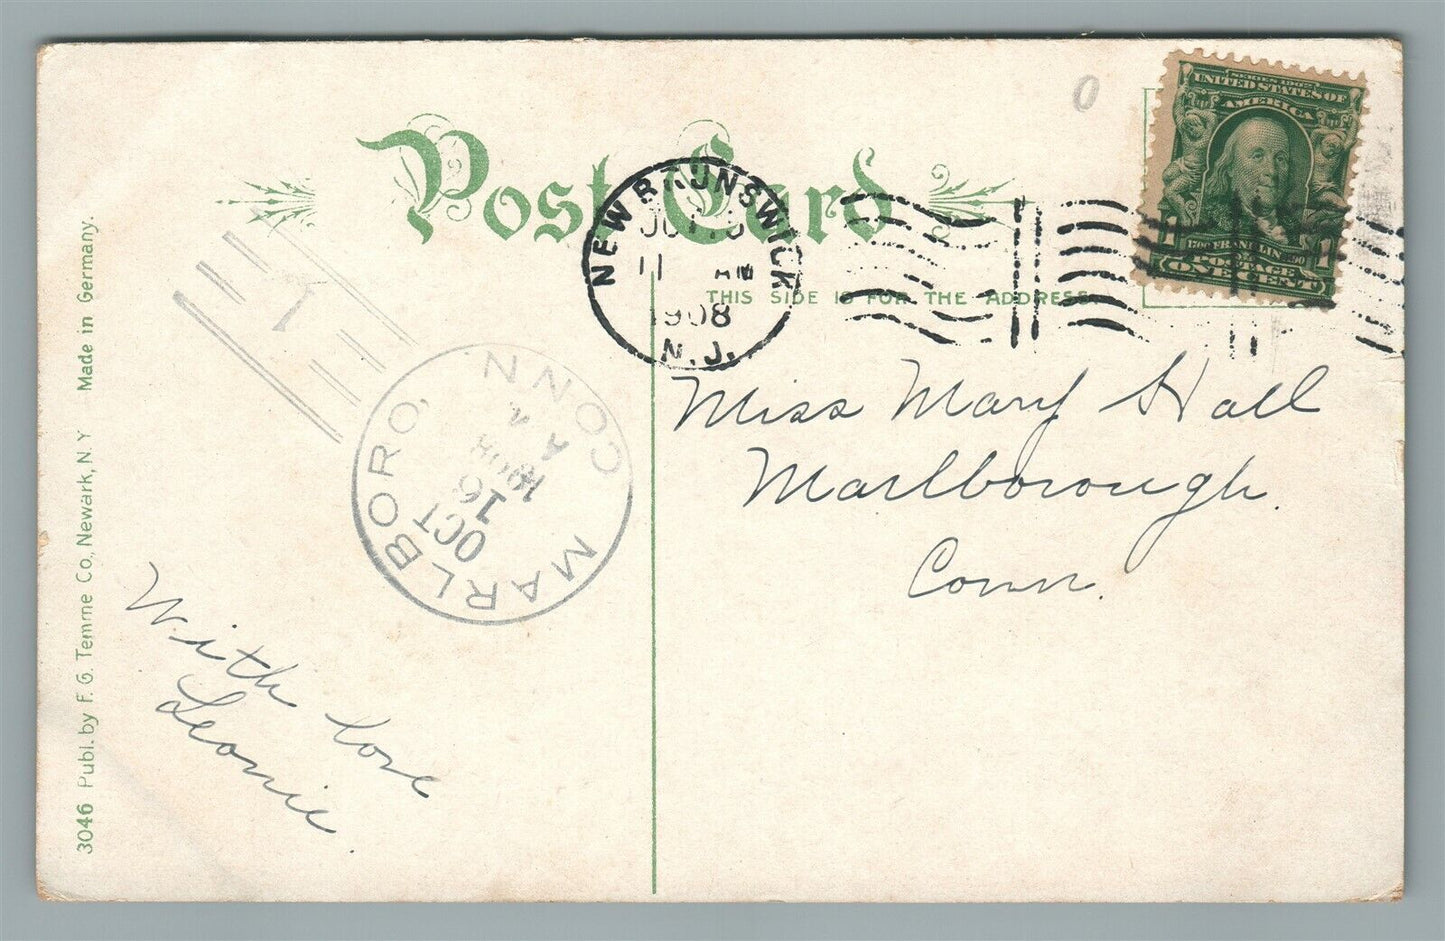 Post Card
THIS SIDE IS FOR THE ADDRESS
NEW BRUNSWICK
11 AM
1908
N.J.
SERIES 1902
UNITED STATES OF
AMERICA
1706 FRANKLIN 1790
POSTAGE
1 ONE CENT 1
0
1
MARLBORO, CONN.
OCT
16
1908
A.M.
Miss Mary Hall
Marlborough.
Conn.
With love
Leonie.
3046 Publ. by F. G. Temme Co., Newark, N. Y Made in Germany.